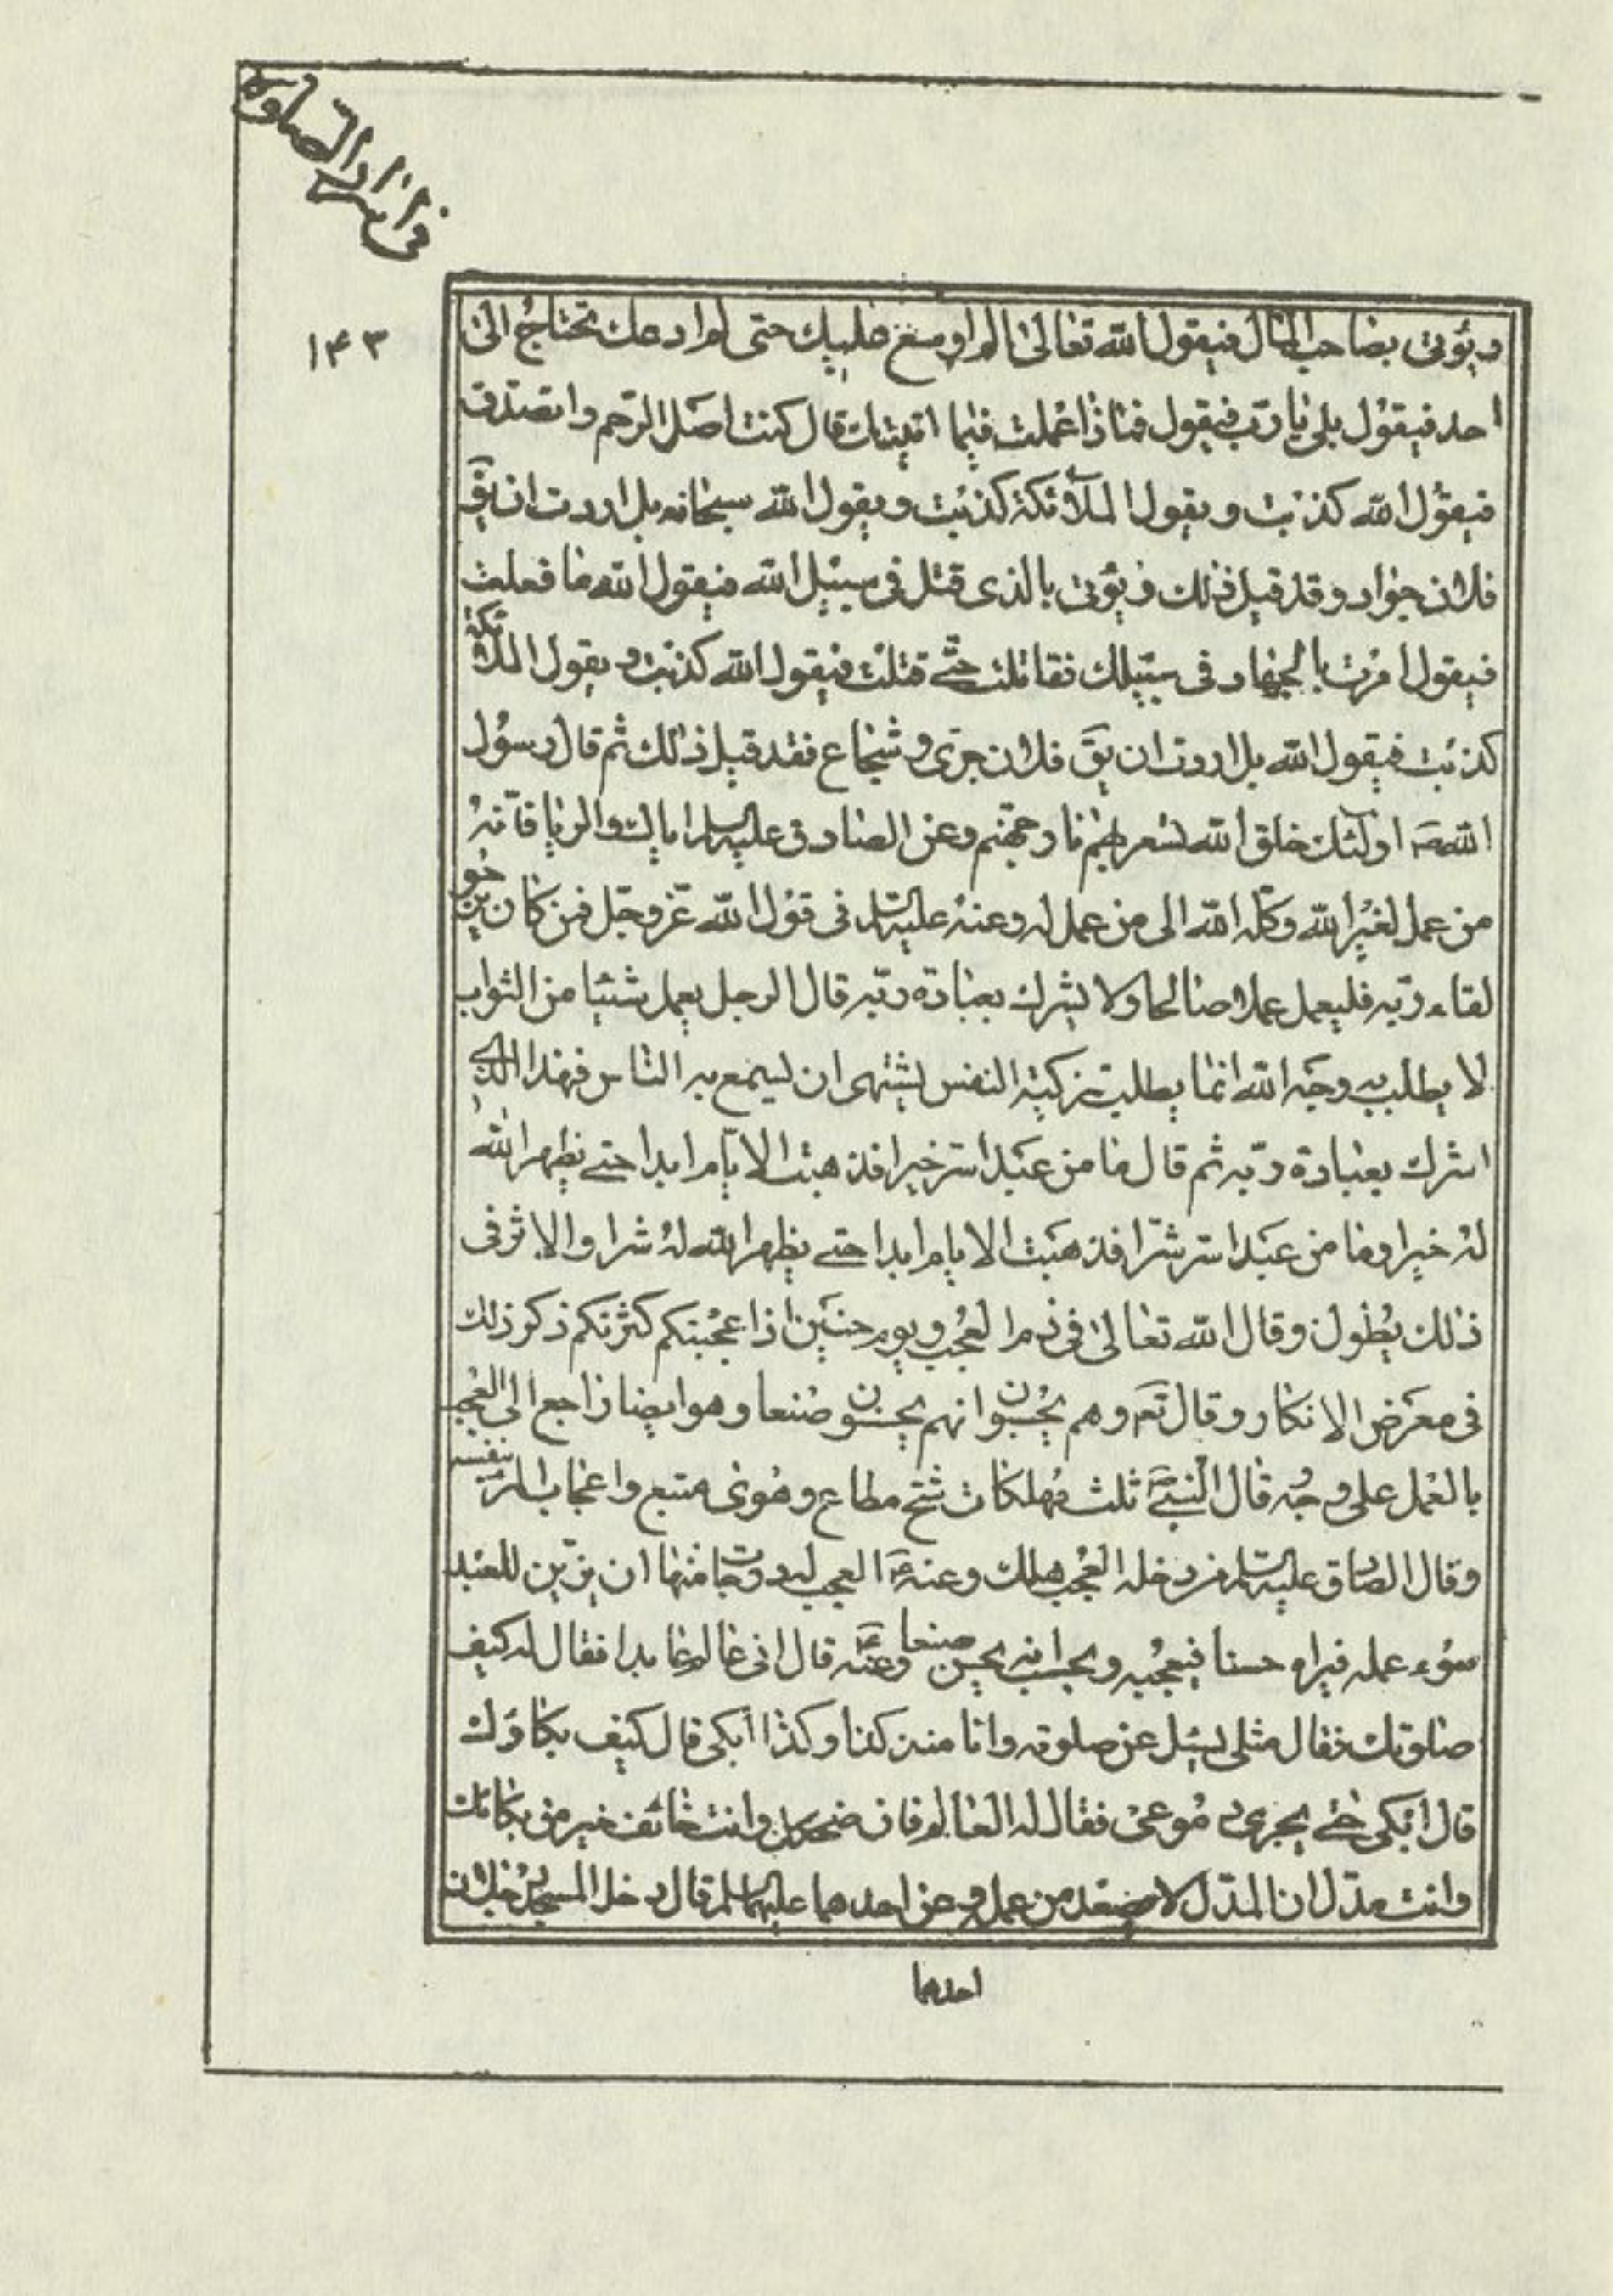 في اسرار الصلوة
١٤٣
ويؤتى بصاحب المال فيقول الله تعالى الم اوسع عليك حتى لم ادعك تحتاج الى
احد فيقول بلى يا رب فيقول فماذا عملت فيما اتيتك قال كنت اصل الرحم واتصدق
فيقول الله كذبت ويقول الملائكة كذبت ويقول الله سبحانه بل اردت ان يق
فلان جواد وقد قيل ذلك ويؤتى بالذى قتل في سبيل الله فيقول الله ما فعلت
فيقول امرت بالجهاد في سبيلك فقاتلت حتى قتلت فيقول الله كذبت ويقول الملائكة
كذبت فيقول الله بل اردت ان يق فلان جرى و شجاع فقد قيل ذلك ثم قال رسول
الله ص اولئك خلق الله تسعر بهم نار جهنم وعن الصادق عليه السلام اياك والريا فانه
من عمل لغير الله وكله الله الى من عمل له وعنه عليه السلام في قول الله عز وجل فمن كان يرجو
لقاء ربه فليعمل عملا صالحا ولا يشرك بعبادة ربه قال الرجل يعمل شيئا من الثواب
لا يطلب به وجه الله انما يطلب تزكية النفس يشتهى ان يسمع به الناس فهذا الذي
اشرك بعبادة ربه ثم قال ما من عبد اسر خيرا فذهبت الايام ابدا حتى يظهر الله
له خيرا وما من عبد اسر شرا فذهبت الايام ابدا حتى يظهر الله له شرا والاثر في
ذلك يطول وقال الله تعالى في ذم العجب ويوم حنين اذ اعجبتكم كثرتكم ذكر ذلك
في معرض الانكار وقال تع وهم يحسبون انهم يحسنون صنعا وهو ايضا راجع الى العجب
بالعمل على وجه قال النبي ص ثلث مهلكات شح مطاع وهوى متبع واعجاب المرء بنفسه
وقال الصادق عليه السلام من دخله العجب هلك وعنه ع العجب له درجات منها ان يزين للعبد
سوء عمله فيراه حسنا فيعجبه ويحسب انه يحسن صنعا وعنه ع قال اتى عالم عابدا فقال له كيف
صلوتك فقال مثلى يسئل عن صلوته وانا منذ كذا وكذا ابكى قال كيف بكاؤك
قال ابكى حتى يجرى دموعى فقال له العالم فان ضحكك وانت خائف خير من بكائك
وانت مدل ان المدل لا يصعد من عمله وعن احدهما عليهما السلام قال دخل المسجد رجلان
احدهما